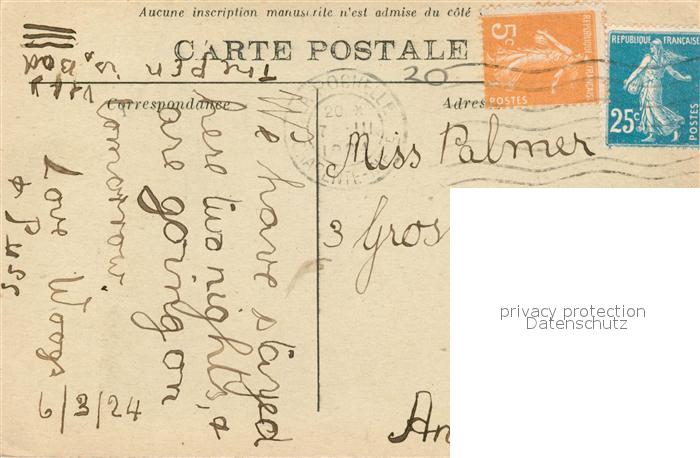 Aucune inscription manuscrite n'est admise du côté
CARTE POSTALE
20
5c
POSTES
REPUBLIQUE FRANÇAISE
25c
POSTES
Correspondance
Adres
LA ROCHELLE
20
7 III
Miss Palmer
3 Gros
An
The pen is very Bad
We have stayed
here two nights, &
are going on
tomorrow.
Love Woogs
& Kiss
6/3/24
privacy protection
Datenschutz